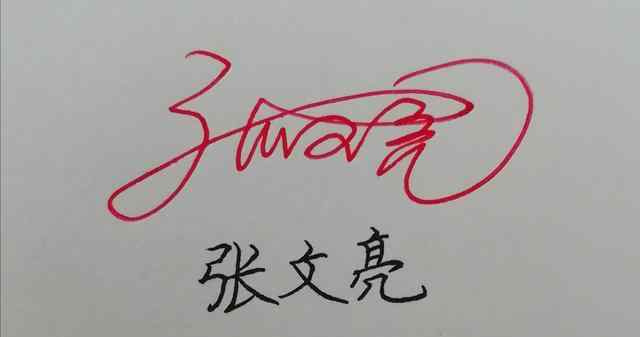 张文亮
张文亮